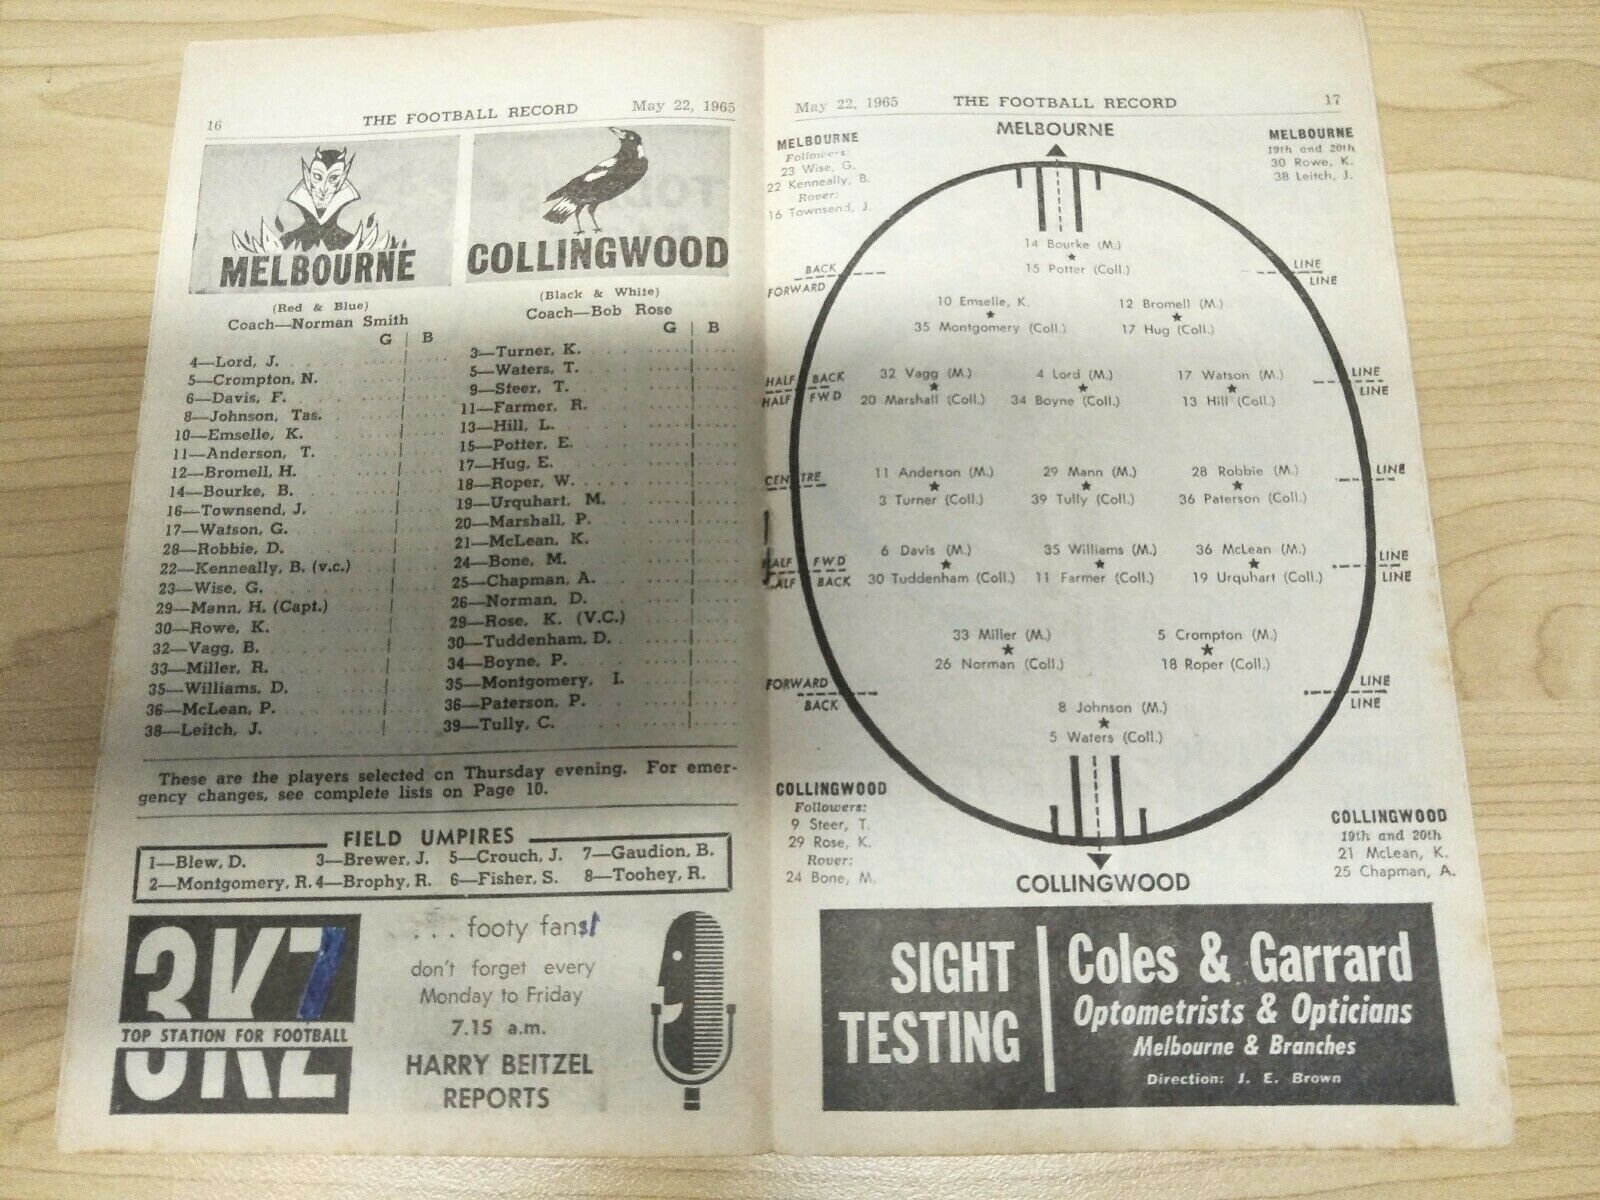 16 THE FOOTBALL RECORD May 22, 1965
MELBOURNE
(Red & Blue)
Coach—Norman Smith
G | B
4—Lord, J.
5—Crompton, N.
6—Davis, F.
8—Johnson, Tas.
10—Emselle, K.
11—Anderson, T.
12—Bromell, H.
14—Bourke, B.
16—Townsend, J.
17—Watson, G.
28—Robbie, D.
22—Kenneally, B. (v.c.)
23—Wise, G.
29—Mann, H. (Capt.)
30—Rowe, K.
32—Vagg, B.
33—Miller, R.
35—Williams, D.
36—McLean, P.
38—Leitch, J.
COLLINGWOOD
(Black & White)
Coach—Bob Rose
G | B
3—Turner, K.
5—Waters, T.
9—Steer, T.
11—Farmer, R.
13—Hill, L.
15—Potter, E.
17—Hug, E.
18—Roper, W.
19—Urquhart, M.
20—Marshall, P.
21—McLean, K.
24—Bone, M.
25—Chapman, A.
26—Norman, D.
29—Rose, K. (V.C.)
30—Tuddenham, D.
34—Boyne, P.
35—Montgomery, I.
36—Paterson, P.
39—Tully, C.
These are the players selected on Thursday evening. For emer-
gency changes, see complete lists on Page 10.
FIELD UMPIRES
1—Blew, D. 3—Brewer, J. 5—Crouch, J. 7—Gaudion, B.
2—Montgomery, R. 4—Brophy, R. 6—Fisher, S. 8—Toohey, R.
3KZ
TOP STATION FOR FOOTBALL
3KZ
. . . footy fans!
don't forget every
Monday to Friday
7.15 a.m.
HARRY BEITZEL
REPORTS
May 22, 1965 THE FOOTBALL RECORD 17
MELBOURNE
Followers:
23 Wise, G.
22 Kenneally, B.
Rover:
16 Townsend, J.
MELBOURNE
MELBOURNE
19th and 20th
30 Rowe, K.
38 Leitch, J.
14 Bourke (M.)
15 Potter (Coll.)
BACK LINE
FORWARD LINE
10 Emselle, K. 12 Bromell (M.)
35 Montgomery (Coll.) 17 Hug (Coll.)
HALF BACK 32 Vagg (M.) 4 Lord (M.) 17 Watson (M.) LINE
HALF FWD 20 Marshall (Coll.) 34 Boyne (Coll.) 13 Hill (Coll.) LINE
11 Anderson (M.) 29 Mann (M.) 28 Robbie (M.)
CENTRE LINE
3 Turner (Coll.) 39 Tully (Coll.) 36 Paterson (Coll.)
HALF FWD 6 Davis (M.) 35 Williams (M.) 36 McLean (M.) LINE
HALF BACK 30 Tuddenham (Coll.) 11 Farmer (Coll.) 19 Urquhart (Coll.) LINE
33 Miller (M.) 5 Crompton (M.)
26 Norman (Coll.) 18 Roper (Coll.)
FORWARD LINE
BACK LINE
8 Johnson (M.)
5 Waters (Coll.)
COLLINGWOOD
Followers:
9 Steer, T.
29 Rose, K.
Rover:
24 Bone, M.
COLLINGWOOD
COLLINGWOOD
19th and 20th
21 McLean, K.
25 Chapman, A.
SIGHT
TESTING
Coles & Garrard
Optometrists & Opticians
Melbourne & Branches
Direction: J. E. Brown